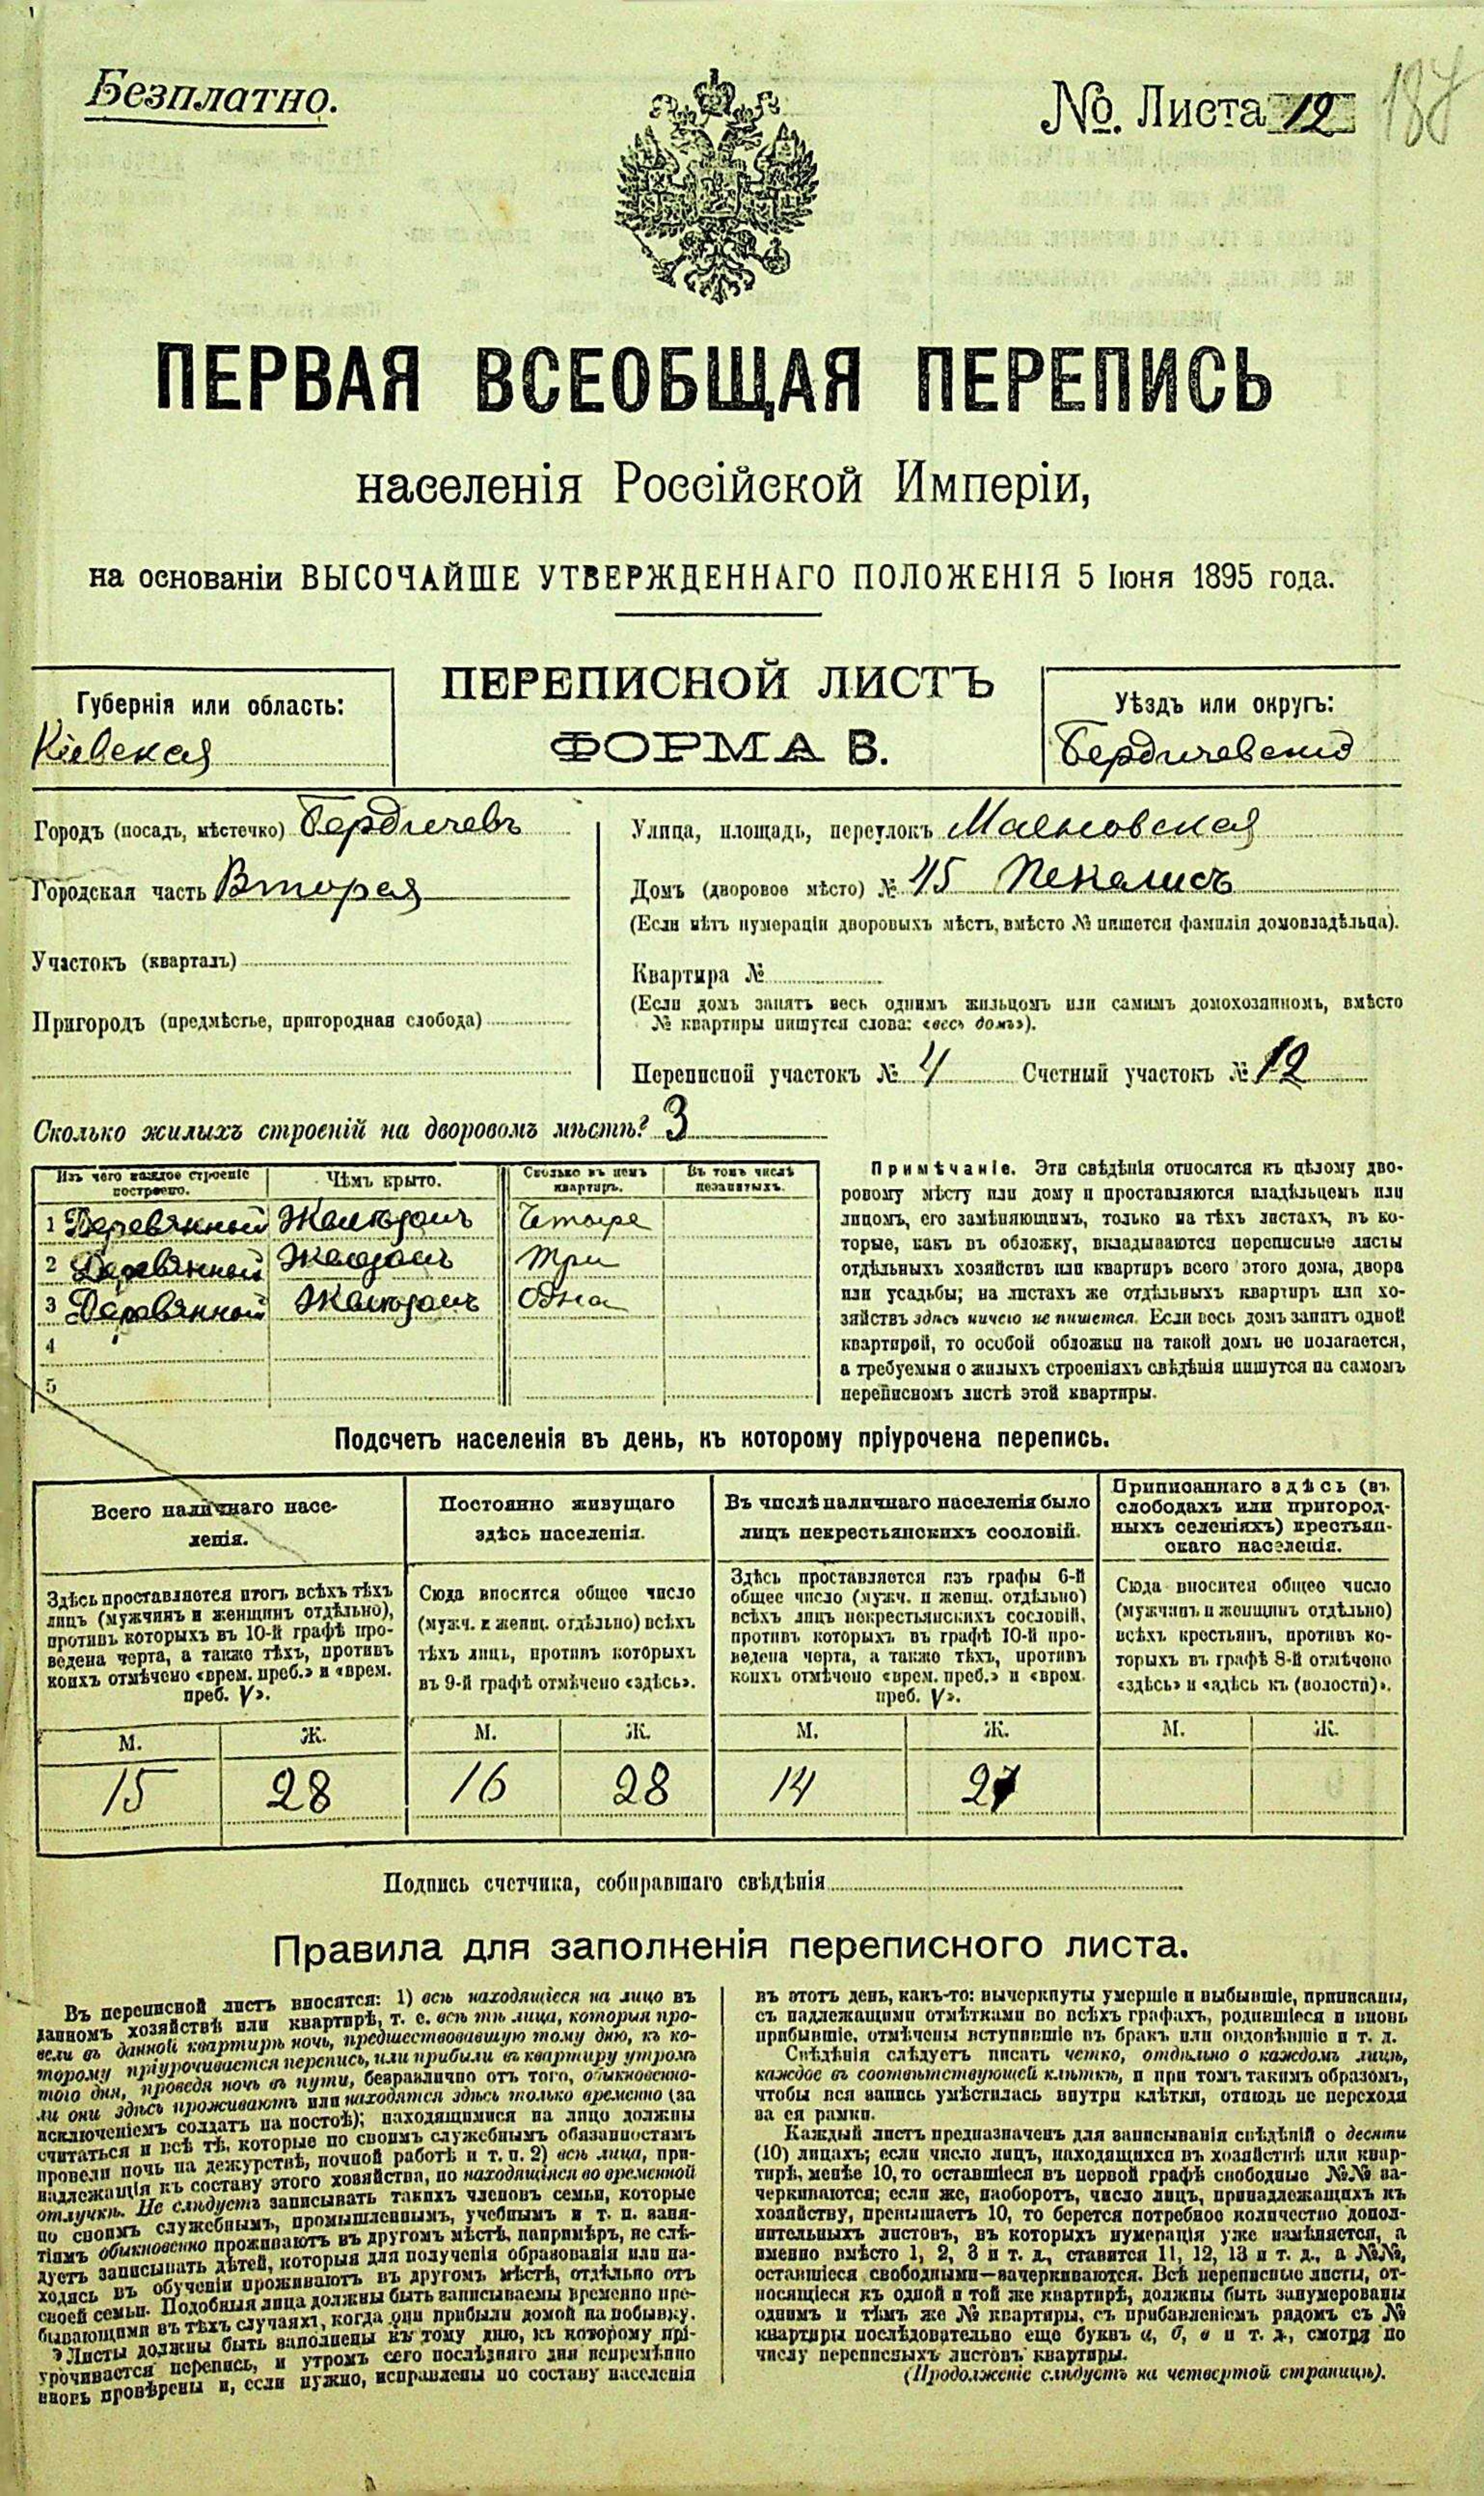 Безплатно.
№. Листа 12
187
ПЕРВАЯ ВСЕОБЩАЯ ПЕРЕПИСЬ
населенія Россійской Имперіи,
на основаніи ВЫСОЧАЙШЕ УТВЕРЖДЕННАГО ПОЛОЖЕНІЯ 5 Іюня 1895 года.
ПЕРЕПИСНОЙ ЛИСТЪ
ФОРМА В.
Губернія или область:
Кіевская
Уѣздъ или округъ:
Бердичевскій
Городъ (посадъ, мѣстечко) Бердичевъ
Городская часть Вторая
Участокъ (кварталъ)
Пригородъ (предмѣстье, пригородная слобода)
Улица, площадь, переулокъ
Домъ (дворовое мѣсто) №
(Если нѣтъ нумераціи дворовыхъ мѣстъ, вмѣсто № пишется фамилія домовладѣльца).
Квартира №
(Если домъ занятъ весь однимъ жильцомъ или самимъ домохозяиномъ, вмѣсто
№ квартиры пишутся слова: «весь домъ»).
Переписной участокъ № 4 Счетный участокъ № 12
Сколько жилыхъ строеній на дворовомъ мѣстѣ? 3
Изъ чего каждое строеніе построено. Чѣмъ крыто. Сколько въ немъ квартиръ. Въ томъ числѣ незанятыхъ.
1 Деревянной Желѣзомъ Четыре
2 Деревянной Желѣзомъ Три
3 Деревянной Желѣзомъ Одна
4
5
Примѣчаніе. Эти свѣдѣнія относятся къ цѣлому дво-
ровому мѣсту или дому и проставляются владѣльцемъ или
лицомъ, его замѣняющимъ, только на тѣхъ листахъ, въ ко-
торые, какъ въ обложку, вкладываются переписные листы
отдѣльныхъ хозяйствъ или квартиръ всего этого дома, двора
или усадьбы; на листахъ же отдѣльныхъ квартиръ или хо-
зяйствъ здѣсь ничего не пишется. Если весь домъ занятъ одной
квартирой, то особой обложки на такой домъ не полагается,
а требуемыя о жилыхъ строеніяхъ свѣдѣнія пишутся на самомъ
переписномъ листѣ этой квартиры.
Подсчетъ населенія въ день, къ которому пріурочена перепись.
Всего наличнаго насе-
ленія.
Здѣсь проставляется итогъ всѣхъ тѣхъ
лицъ (мужчинъ и женщинъ отдѣльно),
противъ которыхъ въ 10-й графѣ про-
ведена черта, а также тѣхъ, противъ
коихъ отмѣчено «врем. преб.» и «врем.
преб. V».
М. Ж.
15 28
Постоянно живущаго
здѣсь населенія.
Сюда вносится общее число
(мужч. и женщ. отдѣльно) всѣхъ
тѣхъ лицъ, противъ которыхъ
въ 9-й графѣ отмѣчено «здѣсь».
М. Ж.
16 28
Въ числѣ наличнаго населенія было
лицъ некрестьянскихъ сословій.
Здѣсь проставляется изъ графы 6-й
общее число (мужч. и женщ. отдѣльно)
всѣхъ лицъ некрестьянскихъ сословій,
противъ которыхъ въ графѣ 10-й про-
ведена черта, а также тѣхъ, противъ
коихъ отмѣчено «врем. преб.» и «врем.
преб. V».
М. Ж.
14 27
Приписаннаго здѣсь (въ
слободахъ или пригород-
ныхъ селеніяхъ) крестьян-
скаго населенія.
Сюда вносится общее число
(мужчинъ и женщинъ отдѣльно)
всѣхъ крестьянъ, противъ ко-
торыхъ въ графѣ 8-й отмѣчено
«здѣсь» и «здѣсь къ (волости)».
М. Ж.
Подпись счетчика, собиравшаго свѣдѣнія
Правила для заполненія переписного листа.
Въ переписной листъ вносятся: 1) всѣ находящіеся на лицо въ
данномъ хозяйствѣ или квартирѣ, т. е. всѣ тѣ лица, которыя про-
вели въ данной квартирѣ ночь, предшествовавшую тому дню, къ ко-
торому пріурочивается перепись, или прибыли въ квартиру утромъ
того дня, проведя ночь въ пути, безразлично отъ того, обыкновенно-
ли они здѣсь проживаютъ или находятся здѣсь только временно (за
исключеніемъ солдатъ на постоѣ); находящимися на лицо должны
считаться и всѣ тѣ, которые по своимъ служебнымъ обязанностямъ
провели ночь на дежурствѣ, ночной работѣ и т. п. 2) всѣ лица, при-
надлежащія къ составу этого хозяйства, но находящіяся во временной
отлучкѣ. Не слѣдуетъ записывать такихъ членовъ семьи, которые
по своимъ служебнымъ, промышленнымъ, учебнымъ и т. п. заня-
тіямъ обыкновенно проживаютъ въ другомъ мѣстѣ, напримѣръ, не слѣ-
дуетъ записывать дѣтей, которыя для полученія образованія или на-
ходясь въ обученіи проживаютъ въ другомъ мѣстѣ, отдѣльно отъ
своей семьи. Подобныя лица должны быть записываемы временно пре-
бывающими въ тѣхъ случаяхъ, когда они прибыли домой на побывку.
Листы должны быть заполнены къ тому дню, къ которому прі-
урочивается перепись, и утромъ сего послѣдняго дня непремѣнно
вновь провѣрены и, если нужно, исправлены по составу населенія
въ этотъ день, какъ-то: вычеркнуты умершіе и выбывшіе, приписаны,
съ надлежащими отмѣтками во всѣхъ графахъ, родившіеся и вновь
прибывшіе, отмѣчены вступившіе въ бракъ или овдовѣвшіе и т. д.
Свѣдѣнія слѣдуетъ писать четко, отдѣльно о каждомъ лицѣ,
каждое въ соотвѣтствующей клѣткѣ, и при томъ такимъ образомъ,
чтобы вся запись умѣстилась внутри клѣтки, отнюдь не переходя
за ея рамки.
Каждый листъ предназначенъ для записыванія свѣдѣній о десяти
(10) лицахъ; если число лицъ, находящихся въ хозяйствѣ или квар-
тирѣ, менѣе 10, то оставшіеся въ первой графѣ свободные №№ за-
черкиваются; если же, наоборотъ, число лицъ, принадлежащихъ къ
хозяйству, превышаетъ 10, то берется потребное количество допол-
нительныхъ листовъ, въ которыхъ нумерація уже измѣняется, а
именно вмѣсто 1, 2, 3 и т. д., ставится 11, 12, 13 и т. д., а №№,
оставшіеся свободными—зачеркиваются. Всѣ переписные листы, от-
носящіеся къ одной и той же квартирѣ, должны быть занумерованы
однимъ и тѣмъ же № квартиры, съ прибавленіемъ рядомъ съ №
квартиры послѣдовательно еще буквъ а, б, в и т. д., смотря по
числу переписныхъ листовъ квартиры.
(Продолженіе слѣдуетъ на четвертой страницѣ).